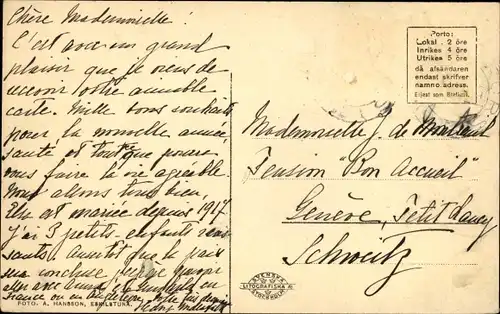 Chère Mademoiselle!
C'est avec un grand
plaisir que je viens de
recevoir votre aimable
carte. Mille bons souhaits
pour la nouvelle année,
santé et tout que pourra
vous faire la vie agréable.
Nous allons tous bien,
Elsa est mariée depuis 1917
j'ai 3 petits-enfants
Aussitôt que la paix
sera conclue
France ou en Angleterre.
FOTO. A. HANSSON, ESKILSTUNA.
Porto:
Lokal . 2 öre
Inrikes 4 öre
Utrikes 5 öre
då afsändaren
endast skrifver
namn o. adress.
Eljest som Brefkort.
Mademoiselle J. de
Pension "Bon Accueil"
Genève, Petit Lancy
Schweitz
SVENSKA
LITOGRAFISKA
STOCKHOLM